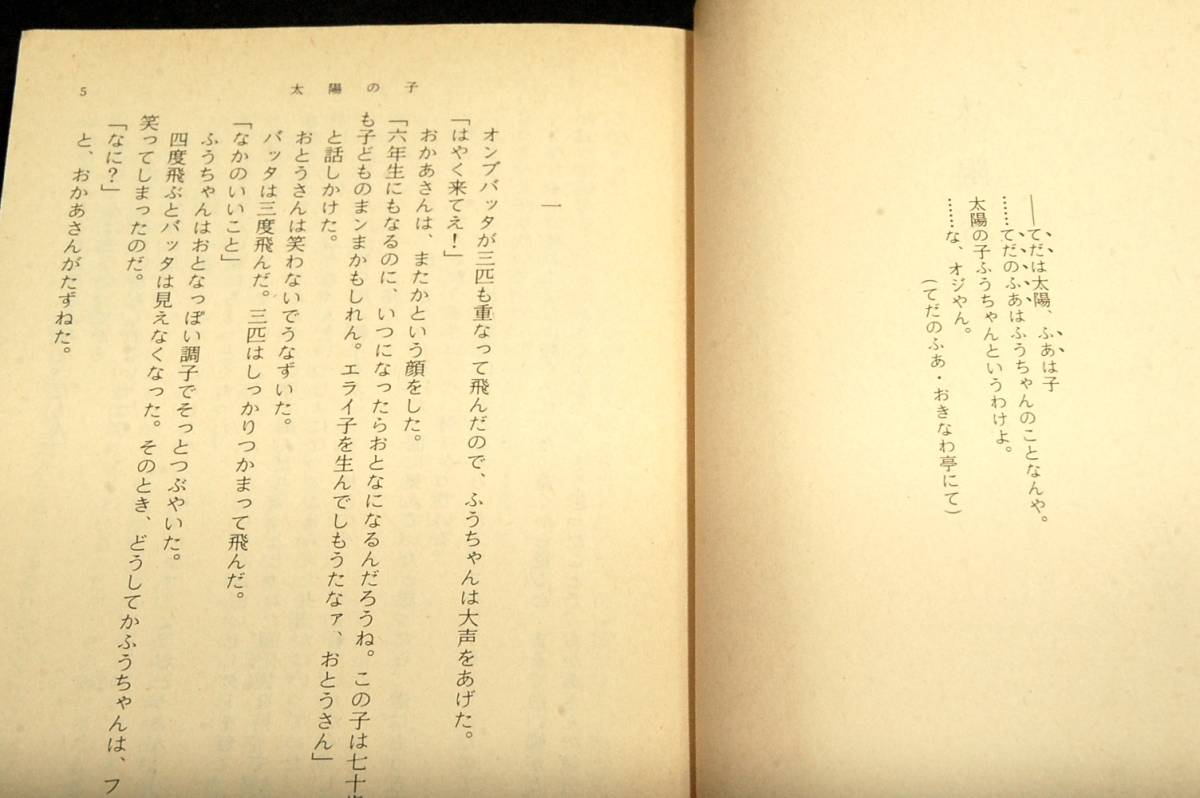 ――てだは太陽、ふあは子
……てだのふあはふうちゃんのことなんや。
太陽の子ふうちゃんというわけよ。
……な、オジやん。
(てだのふあ・おきなわ亭にて)
5
太陽の子
一
オンブバッタが三匹も重なって飛んだので、ふうちゃんは大声をあげた。
「はやく来てえ!」
おかあさんは、またかという顔をした。
「六年生にもなるのに、いつになったらおとなになるんだろうね。この子は七十
も子どものまンまかもしれん。エライ子を生んでしもうたなァ、おとうさん」
と話しかけた。
おとうさんは笑わないでうなずいた。
バッタは三度飛んだ。三匹はしっかりつかまって飛んだ。
「なかのいいこと」
ふうちゃんはおとなっぽい調子でそっとつぶやいた。
四度飛ぶとバッタは見えなくなった。そのとき、どうしてかふうちゃんは、フ
笑ってしまったのだ。
「なに?」
と、おかあさんがたずねた。